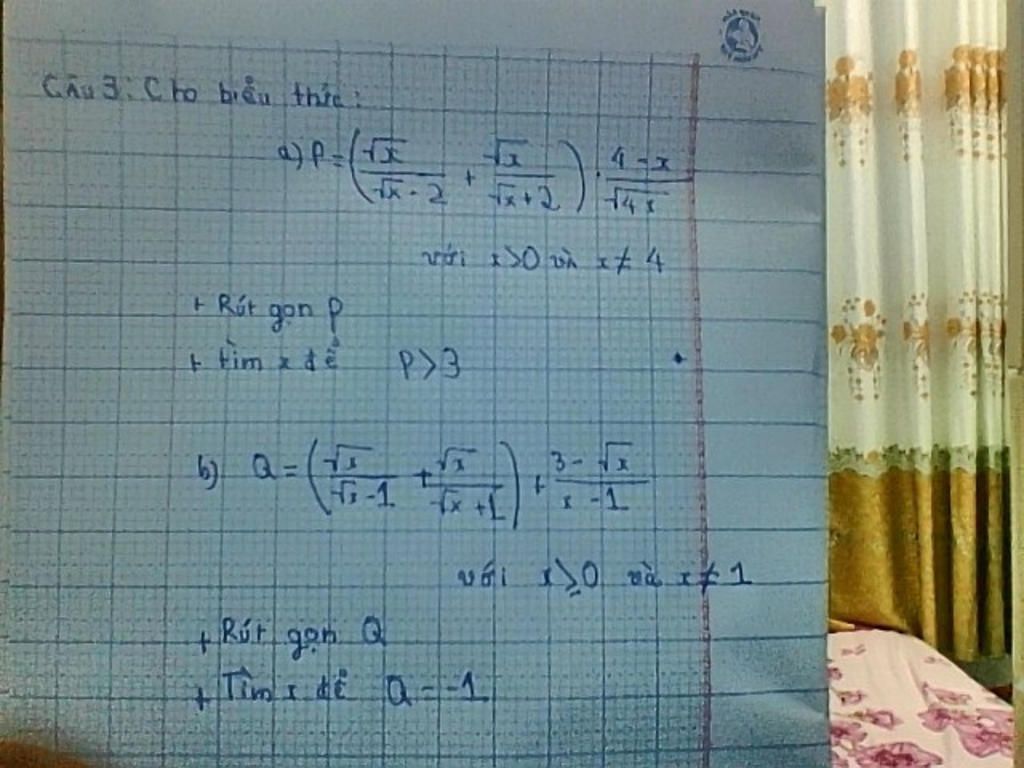 Câu 3: Cho biểu thức:
a) P = (√x/(√x - 2) + √x/(√x + 2)) . (4 - x)/√4x
với x > 0 và x ≠ 4
+ Rút gọn P
+ Tìm x để P > 3
b) Q = (√x/(√x - 1) + √x/(√x + 1)) + (3 - √x)/(x - 1)
với x ≥ 0 và x ≠ 1
+ Rút gọn Q
+ Tìm x để Q = -1